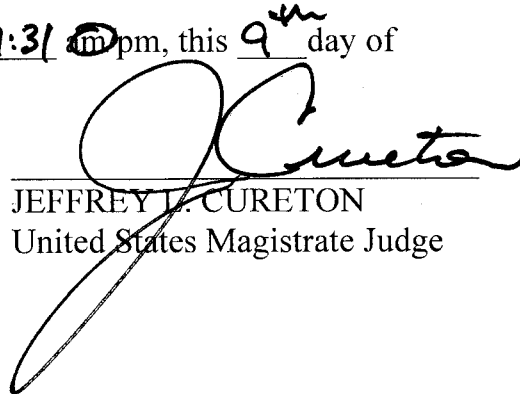 :31 am pm, this 9th day of
J Cureton
JEFFREY L. CURETON
United States Magistrate Judge